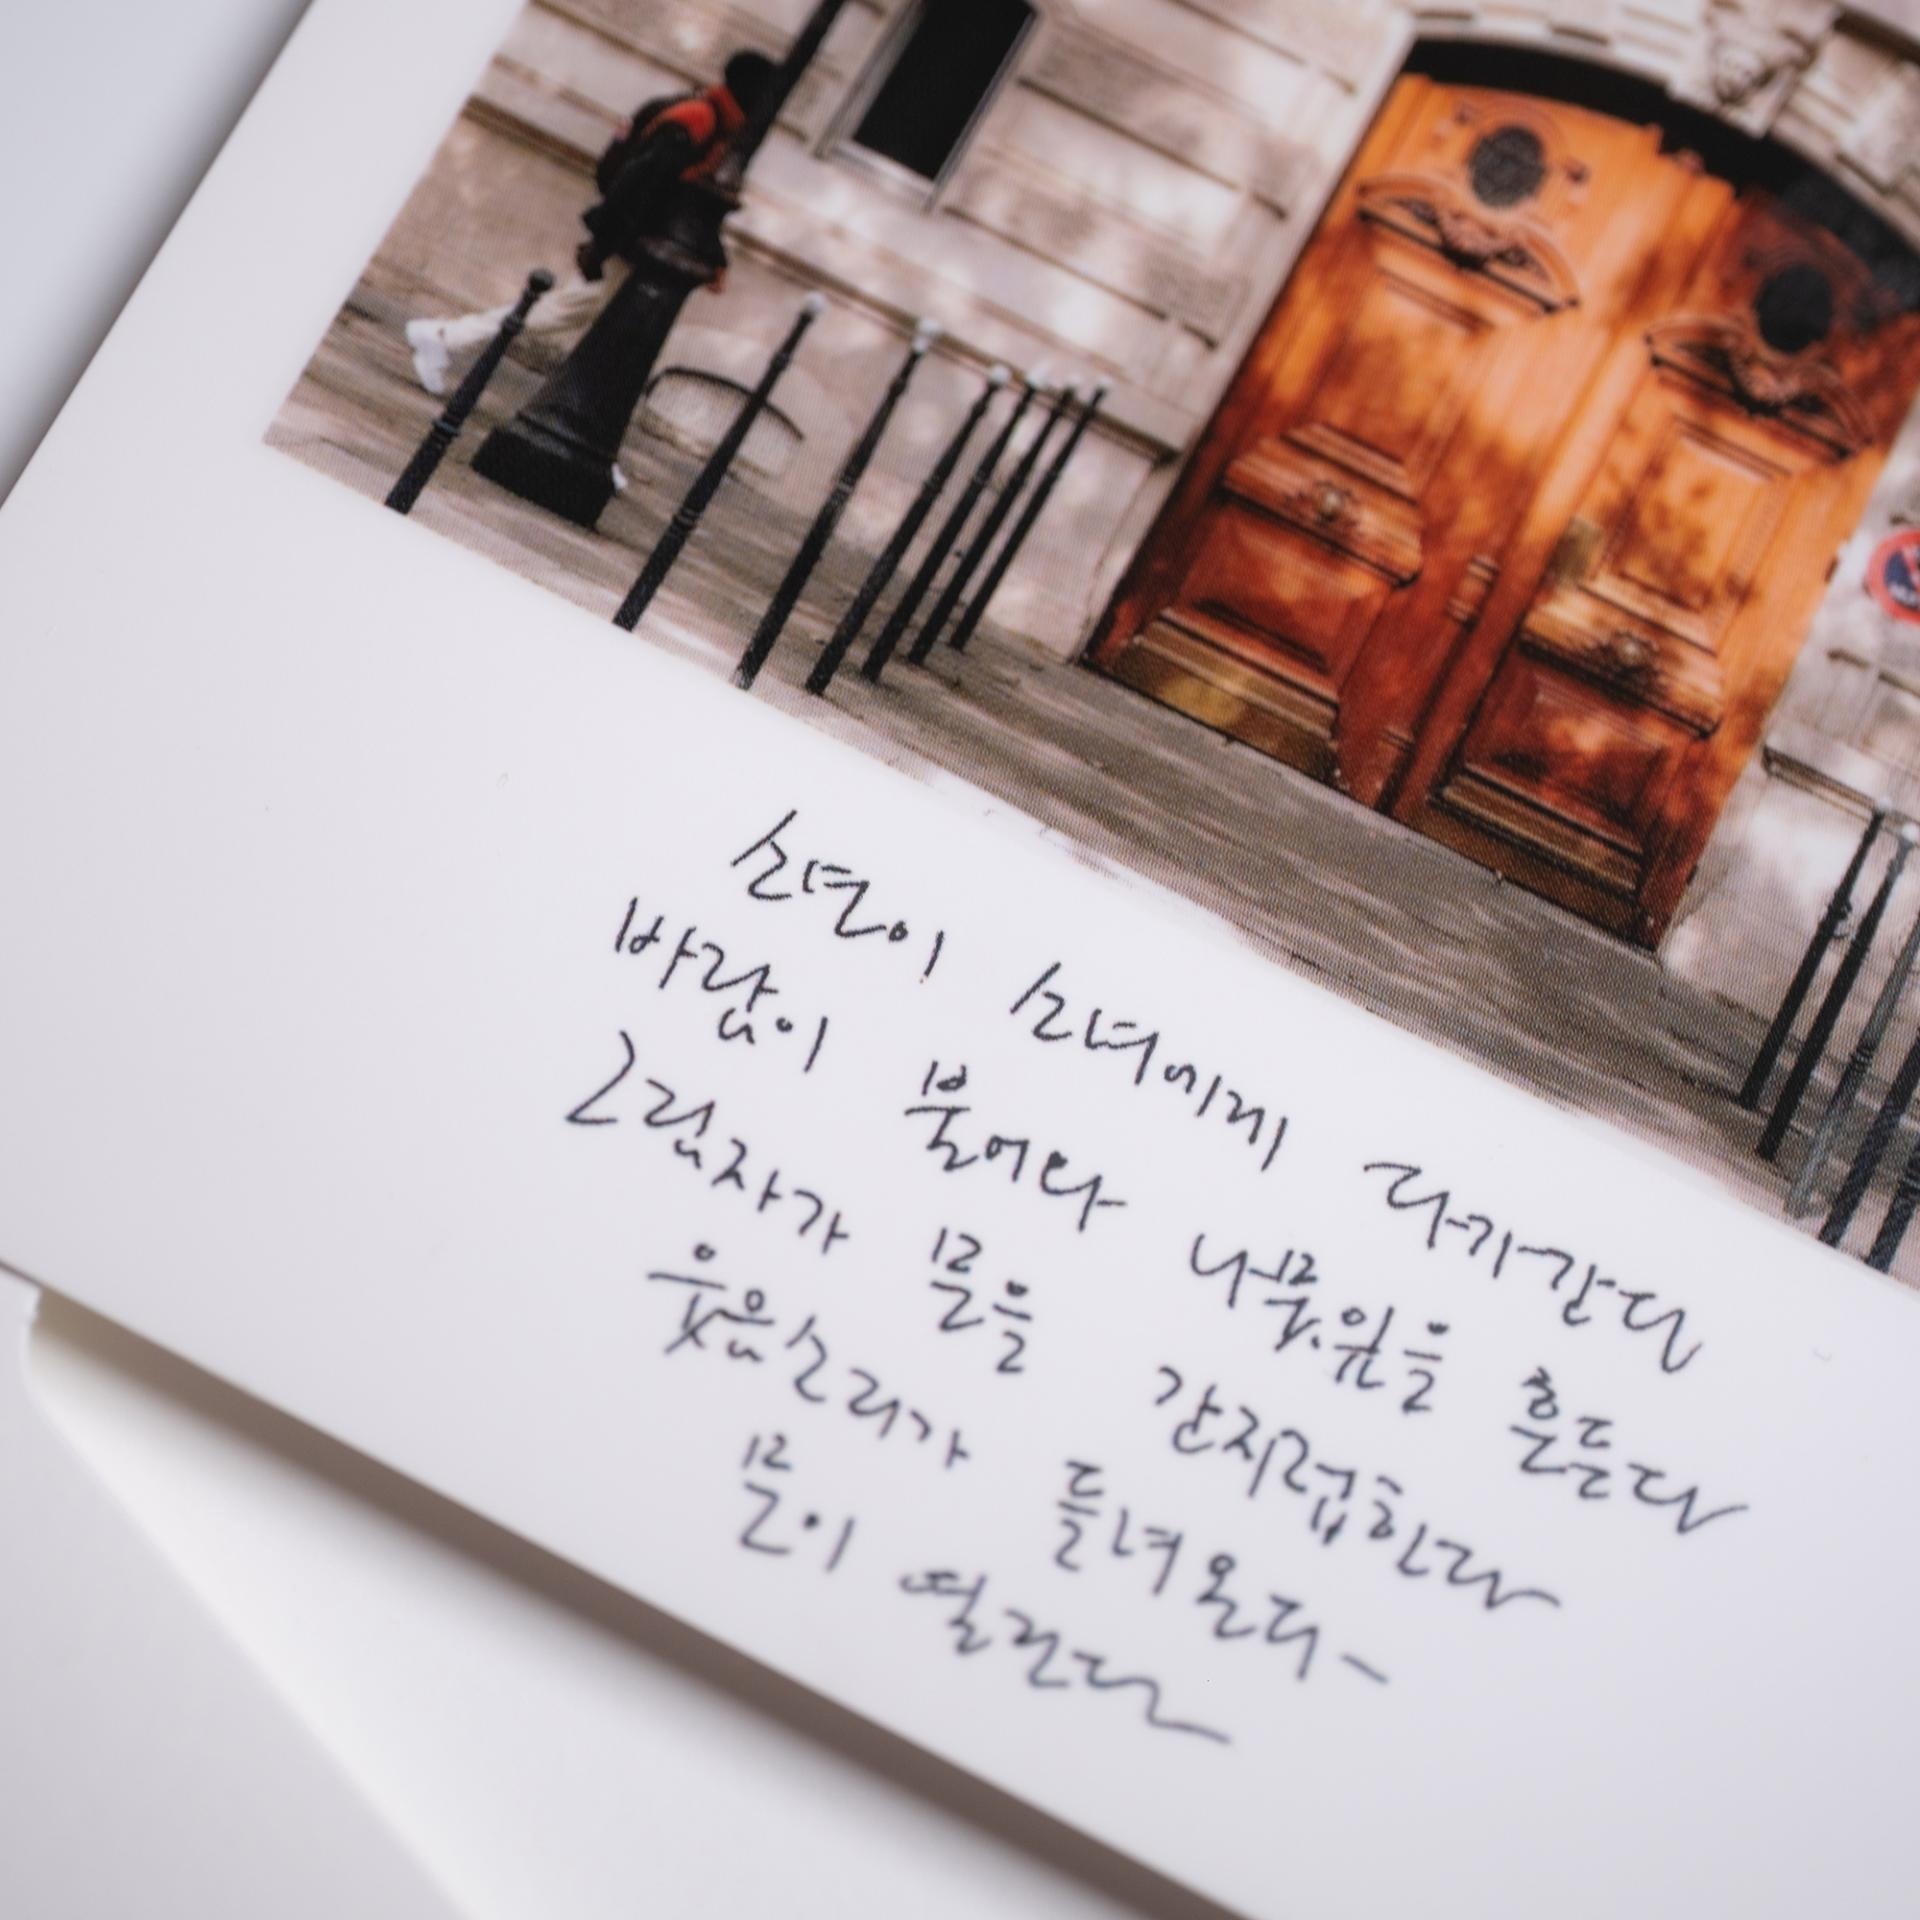 소년이 소녀에게 다가간다
바람이 불어와 나뭇잎을 흔든다
그림자가 문을 간지럽힌다
웃음소리가 들려온다
문이 열린다